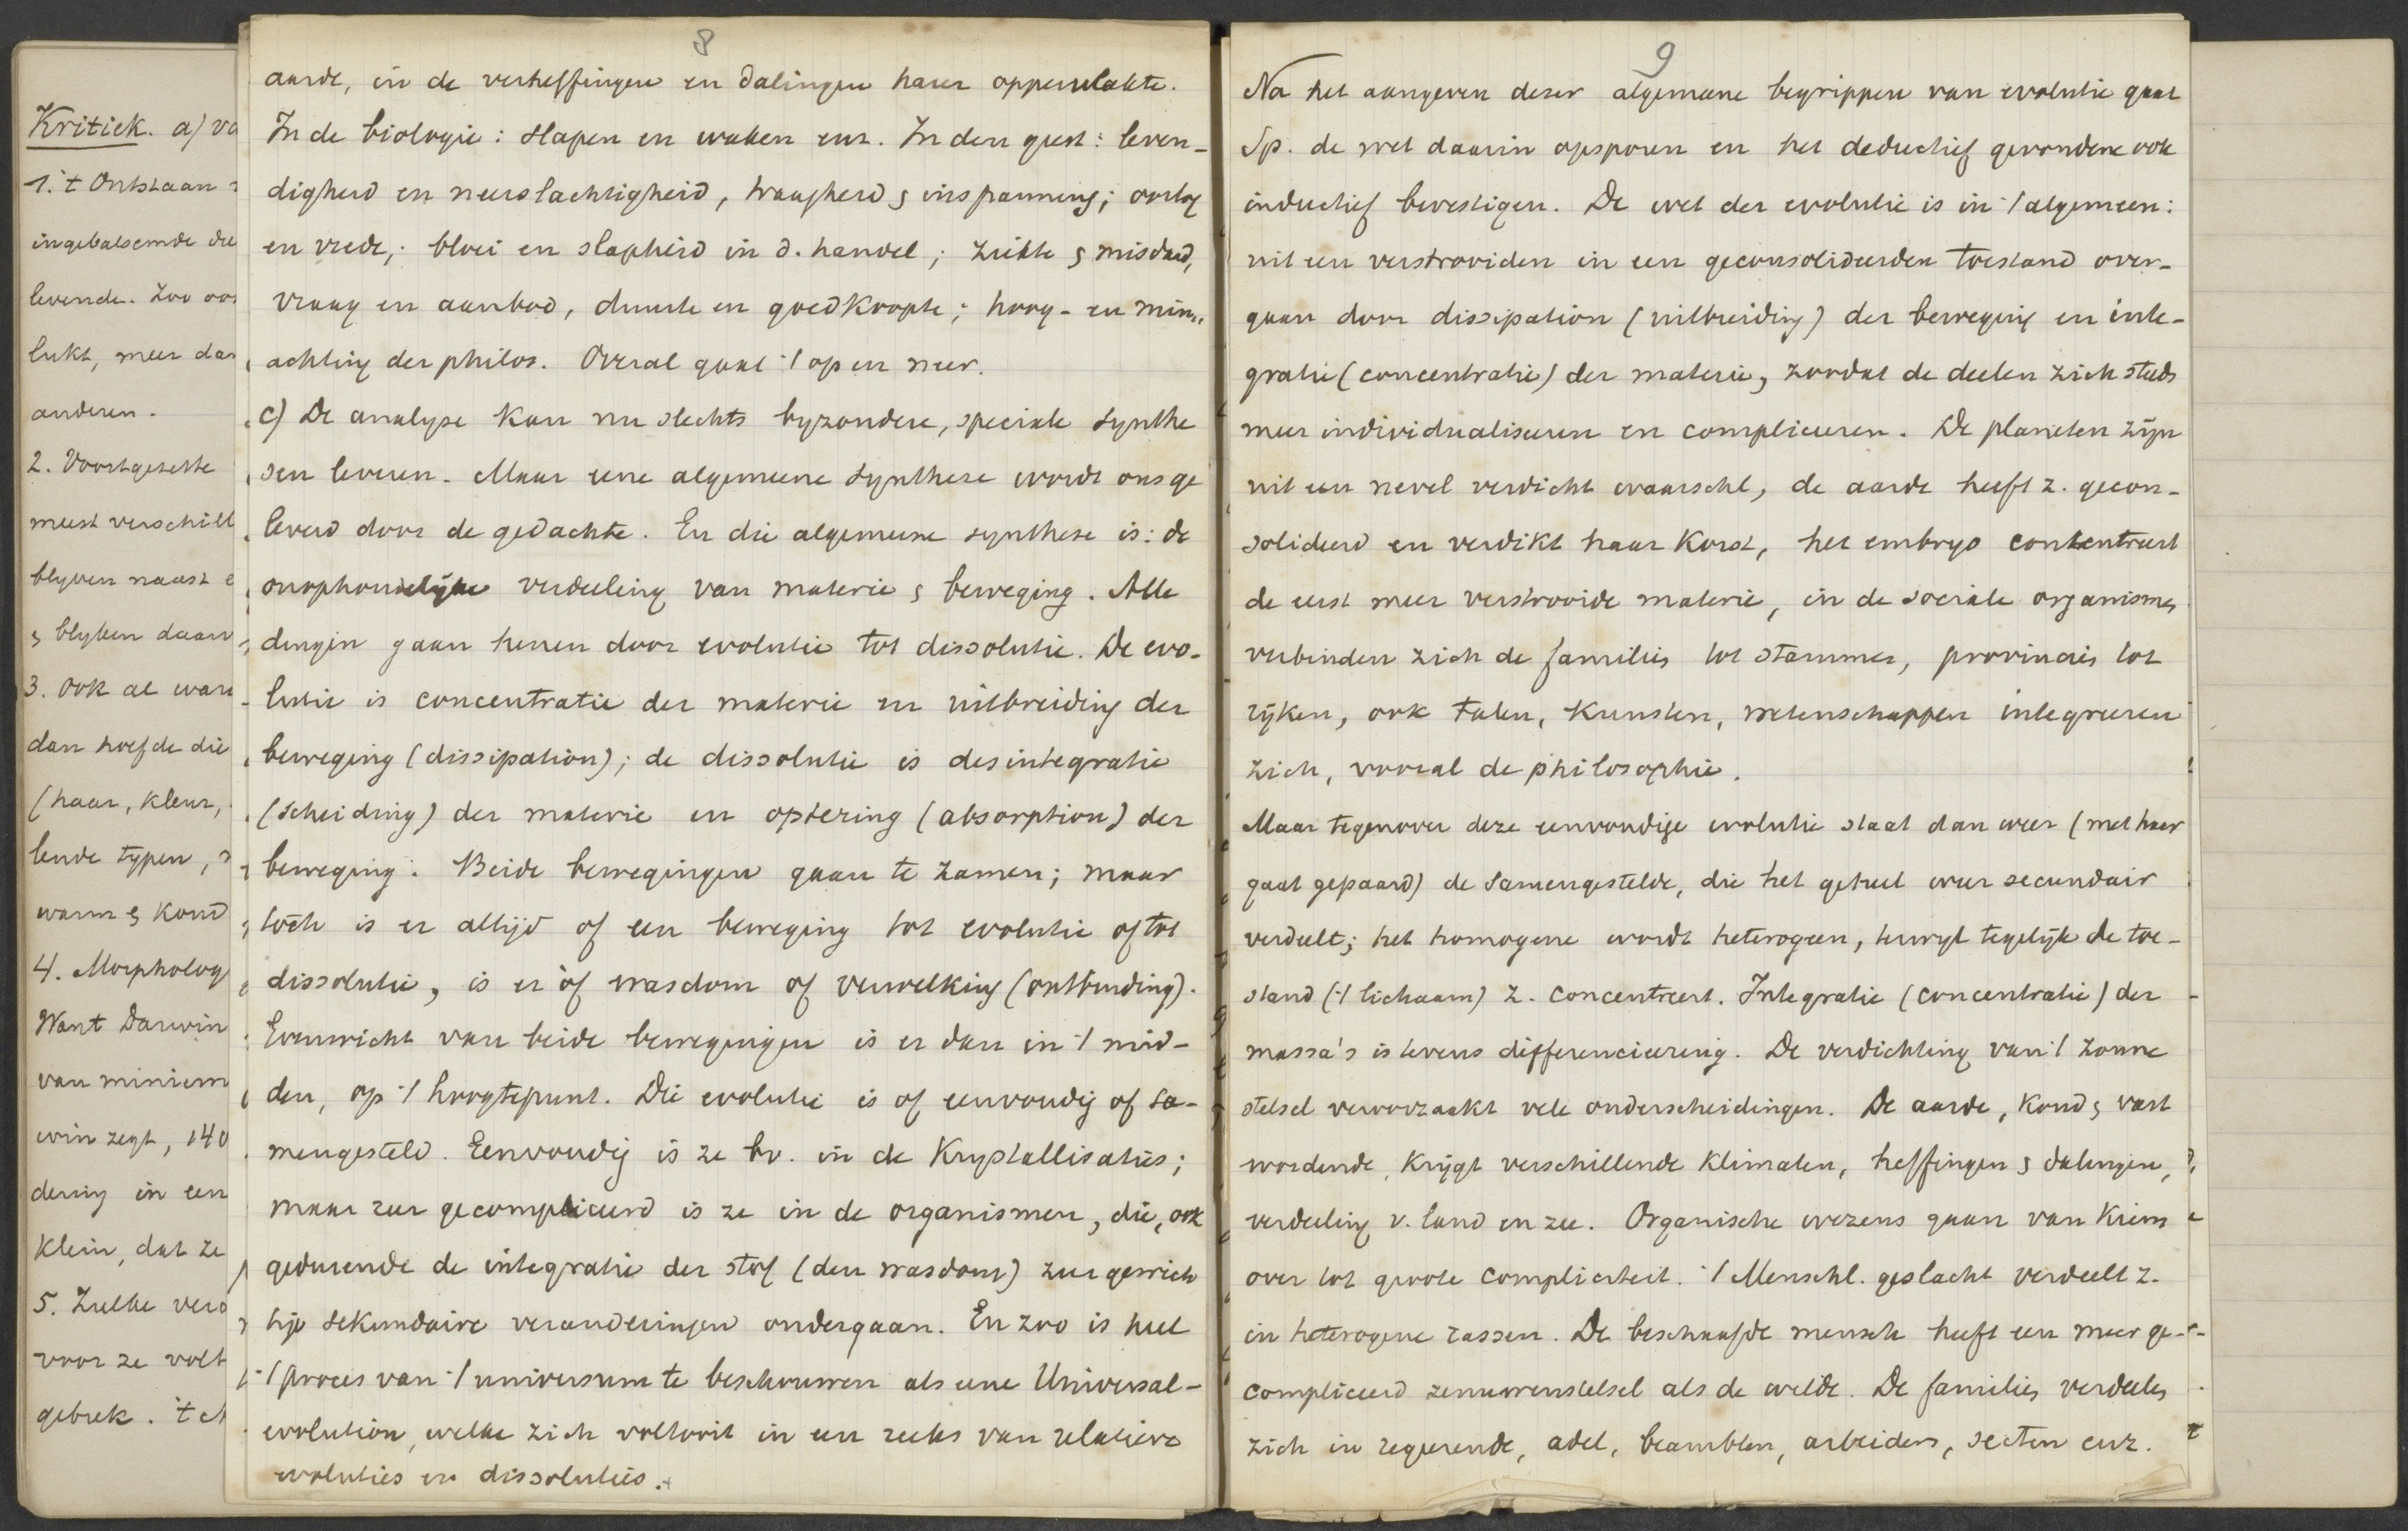 Kritiek. a) va
1. 't Ontstaan
ingebalsemde die
levende. Zoo oo
lukt, meer da
anderen.
2. Voortgezette
meest verschill
blyven naast e
& blyken daar
3. Ook al ware
dan hoefde die
(haar, kleur,
lende typen,
warm & koud
4. Morpholog
Want Darwin
van miniem
win zegt, 140
dering in een
klein, dat ze
5. Zulke vero
voor ze volt
gebrek. 't
8
aarde, in de verheffingen en dalingen harer oppervlakte.
In de biologie: slapen en waken enz. In den geest: leven-
digheid en neerslachtigheid, traagheid & inspanning; oorlog
en vrede; bloei en slapheid in d. handel; ziekte & misdaad,
vraag en aanbod, duurte en goedkoopte; hoog- en min-
achting der philos. Overal gaat 't op en neer.
c) De analyse kan nu slechts byzondere, speciale synthe
sen leveren. Maar eene algemeene synthese wordt ons ge
leverd door de gedachte. En die algemeene synthese is: de
onophoudelijke verdeeling van materie & beweging. Alle
dingen gaan henen door evolutie tot dissolutie. De evo-
lutie is concentratie der materie en uitbreiding der
beweging (dissipation); de dissolutie is desintegratie
(scheiding) der materie en optering (absorption) der
beweging. Beide bewegingen gaan te zamen; maar
toch is er altijd of een beweging tot evolutie of tot
dissolutie, is er òf wasdom of verwelking (ontbinding).
Evenwicht van beide bewegingen is er dan in 't mid-
den, op 't hoogtepunt. Die evolutie is of eenvoudig of sa-
mengesteld. Eenvoudig is ze bv. in de Krystallisaties;
maar zeer gecompliceerd is ze in de organismen, die, ook
gedurende de integratie der stof (den wasdom) zeer gewich
tije sekundaire veranderingen ondergaan. En zoo is heel
't proces van 't universum te beschouwen als eene Universal-
evolution, welke zich voltooit in een reeks van relatieve
evoluties en dissoluties.
9
Na het aangeven dezer algemeene begrippen van evolutie gaat
Sp. de wet daarin opsporen en het deductief gevondene ook
inductief bevestigen. De wet der evolutie is in 't algemeen:
uit een verstrooiden in een geconsolideerden toestand over-
gaan door dissipation (uitbreiding) der beweging en inte-
gratie (concentratie) der materie, zoodat de deelen zich steeds
meer individualiseeren en compliceeren. De planeten zijn
uit een nevel verdicht waarschl, de aarde heeft z. gecon-
solideerd en verdikt haar korst, het embryo concentreert
de eerst meer verstrooide materie, in de sociale organismes
verbinden zich de families tot stammen, provincies tot
rijken, ook talen, kunsten, wetenschappen integreeren
zich, vooral de philosophie.
Maar tegenover deze eenvoudige evolutie staat dan weer (met haar
gaat gepaard) de samengestelde, die het geheel weer secundair
verdeelt; het homogene wordt heterogeen, terwyl tegelijk de toe-
stand (& lichaam) z. concentreert. Integratie (concentratie) der
massa's is tevens differencieering. De verdichting van 't zonne
stelsel veroorzaakt vele onderscheidingen. De aarde, koud & vast
wordende, krijgt verschillende klimaten, heffingen & dalingen,
verdeeling v. land en zee. Organische wezens gaan van kiem
over tot groote compliciteit. 't Menschl. geslacht verdeelt z.
in heterogene rassen. De beschaafde mensch heeft een meer ge-
compliceerd zenuwenstelsel als de wilde. De families verdeelen
zich in regeerende, adel, beambten, arbeiders, secten enz.